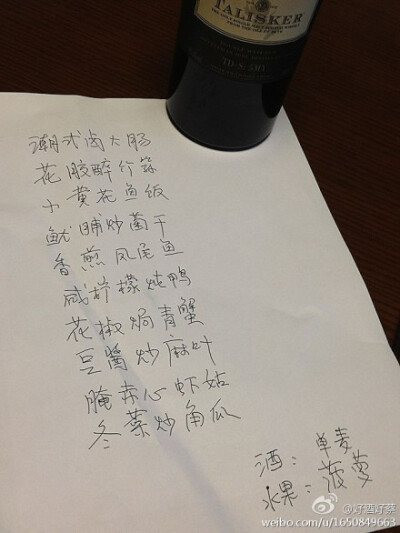 TALISKER
潮式卤大肠
花胶醉竹笋
小黄花鱼饭
鱿脯炒菌干
香煎凤尾鱼
咸柠檬炖鸭
花椒焗青蟹
豆酱炒麻叶
腌赤心虾姑
冬菜炒角瓜
酒：单麦
水果：菠萝
@好酒好菜
weibo.com/u/1650849663